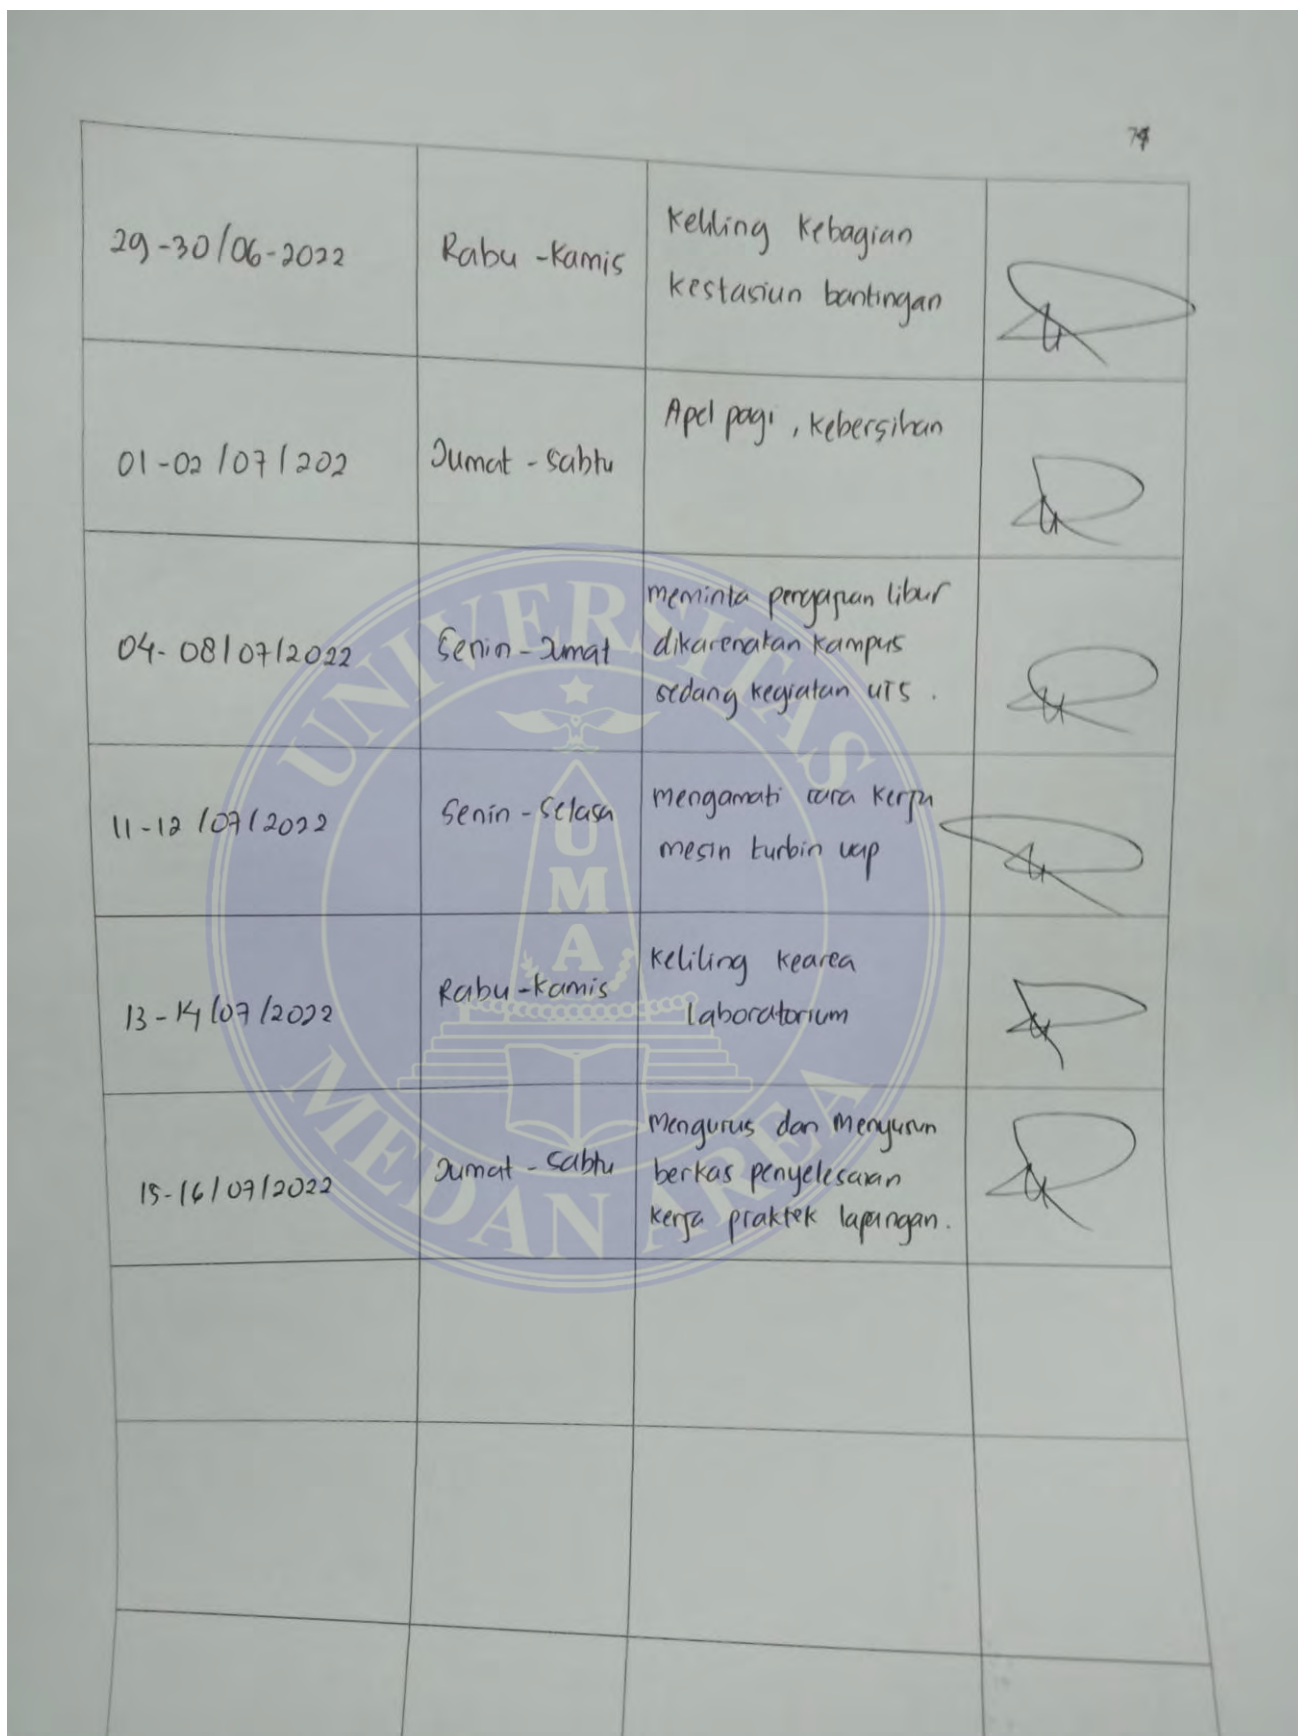 74
29-30/06-2022
Rabu -Kamis
Keliling Kebagian
kestasiun bantingan
01-02/07/202
Jumat - Sabtu
Apel pagi, kebersihan
04-08/07/2022
Senin - Jumat
meminta pengajuan libur
dikarenakan kampus
sedang kegiatan UTS.
11-12/07/2022
Senin - Selasa
mengamati cara kerja
mesin turbin uap
13-14/07/2022
Rabu-Kamis
Keliling kearea
Laboratorium
15-16/07/2022
Jumat - Sabtu
Mengurus dan Menyusun
berkas penyelesaian
kerja praktek lapangan.
UNIVERSITAS
UMA
MEDAN AREA